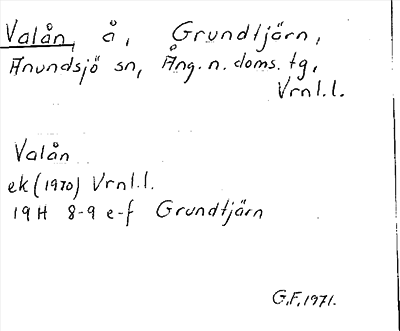 Valån, å, Grundtjärn,
Anundsjö sn, Ång. n. doms. tg,
Vrnl.l.
Valån
ek (1970) Vrnl.l.
19H 8-9 e-f Grundtjärn
G.F. 1971.